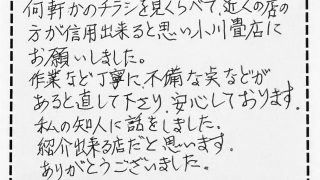 何軒かのチラシを見くらべて、近くの店の
方が信用出来ると思い小川畳店に
お願いしました。
作業など丁寧に、不備な点などが
あると直して下さり、安心しております。
私の知人に話をしました。
紹介出来る店だと思います。
ありがとうございました。